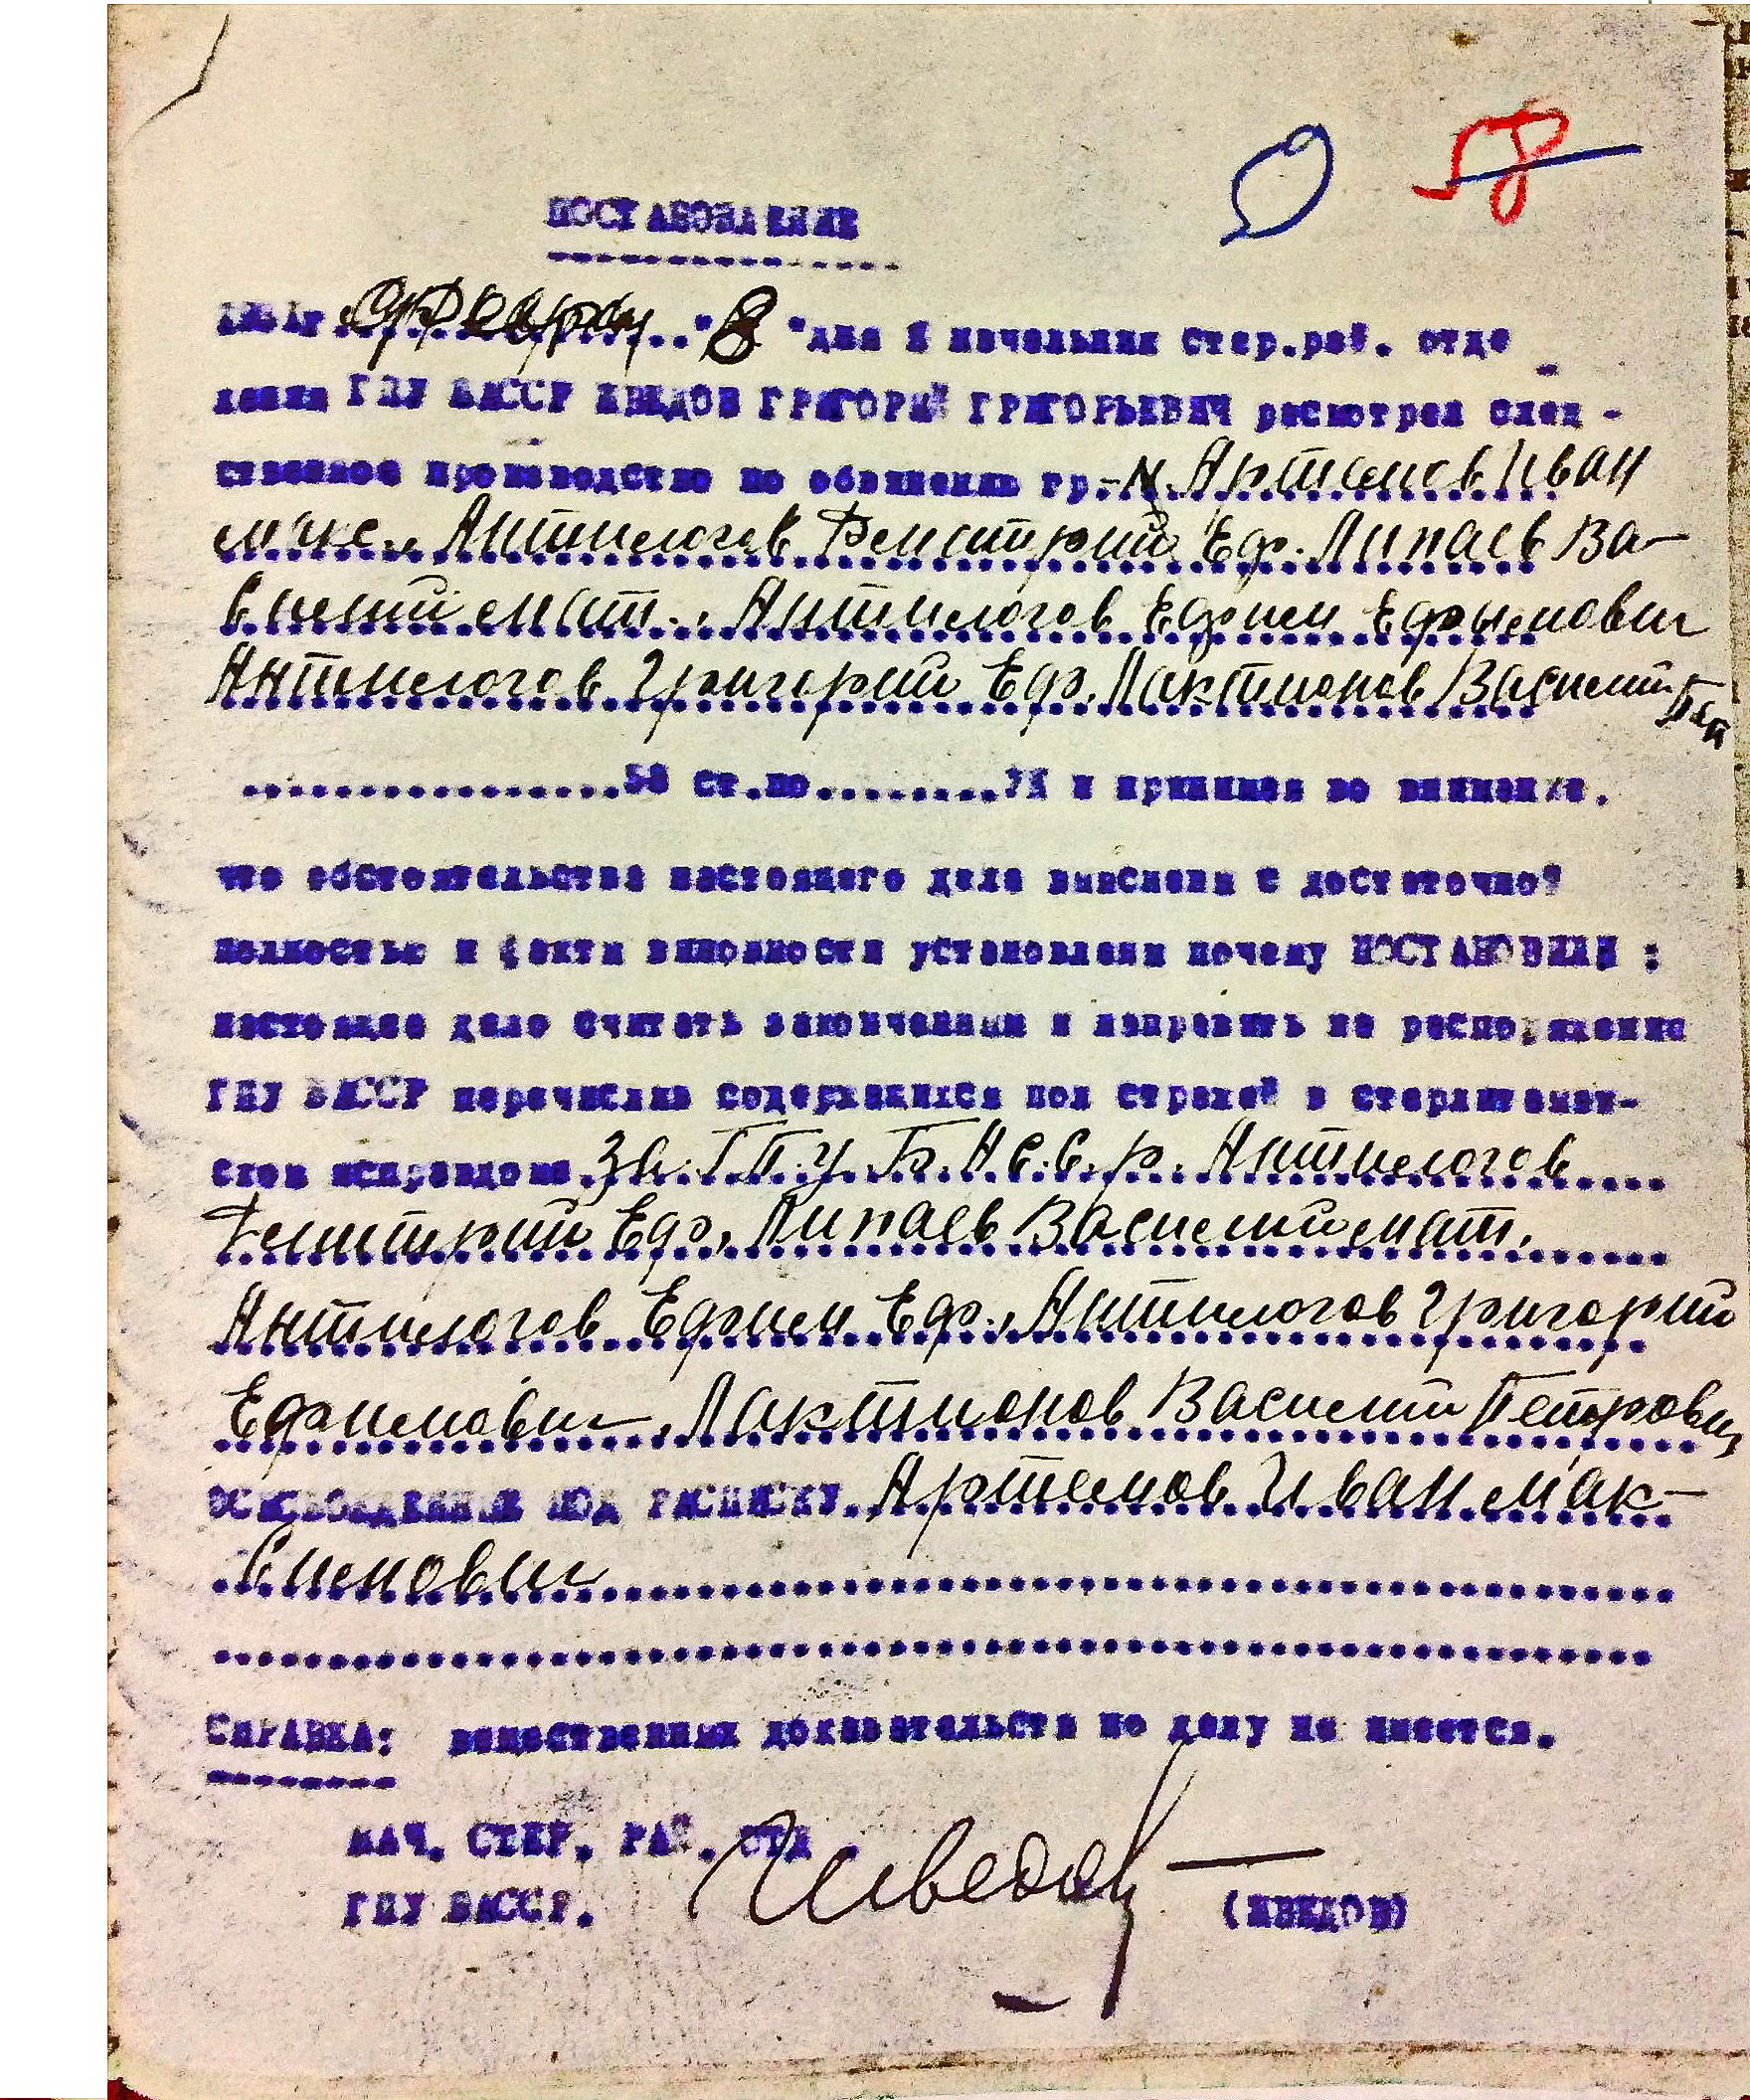 58
ПОСТАНОВЛЕНИЕ
Феврал "8 "дня Я начальник стер.рай. отде
ления ГПУ БАССР ШВЕДОВ ГРИГОРИЙ ГРИГОРЬЕВИЧ расмотрел след -
ственное производство по обвинению гр.-н. Артемов Иван
макс., Антилогов Дмитрий Еф. Липаев Ва-
силий мат., Антилогов Ефим Ефимович
Антилогов Григорий Еф. Лактионов Василий Пет
58 ст.по УК и принимая во внимание.
что обстоятельства настоящего дела выяснены с достаточной
полностью и факты виновности установлены почему ПОСТАНОВИЛ :
настоящее дело считать законченным и направить на распоряжение
ГПУ БАССР перечислив содержавшихся под стражей в стерлитамак-
ском исправдоме за Г.П.У. Б.А.С.С.Р. Антилогов
Дмитрий Еф., Липаев Василий мат.
Антилогов Ефим Еф., Антилогов Григорий
Ефимович, Лактионов Василий Петрович
ОСВОБОЖДЕННЫЕ ПОД РАСПИСКУ. Артемов Иван мак-
симович
СПРАВКА: вещественных доказательств по делу не имеется.
НАЧ. СТЕР. РАЙ. ОТД
ГПУ БАССР. Шведов (ШВЕДОВ)